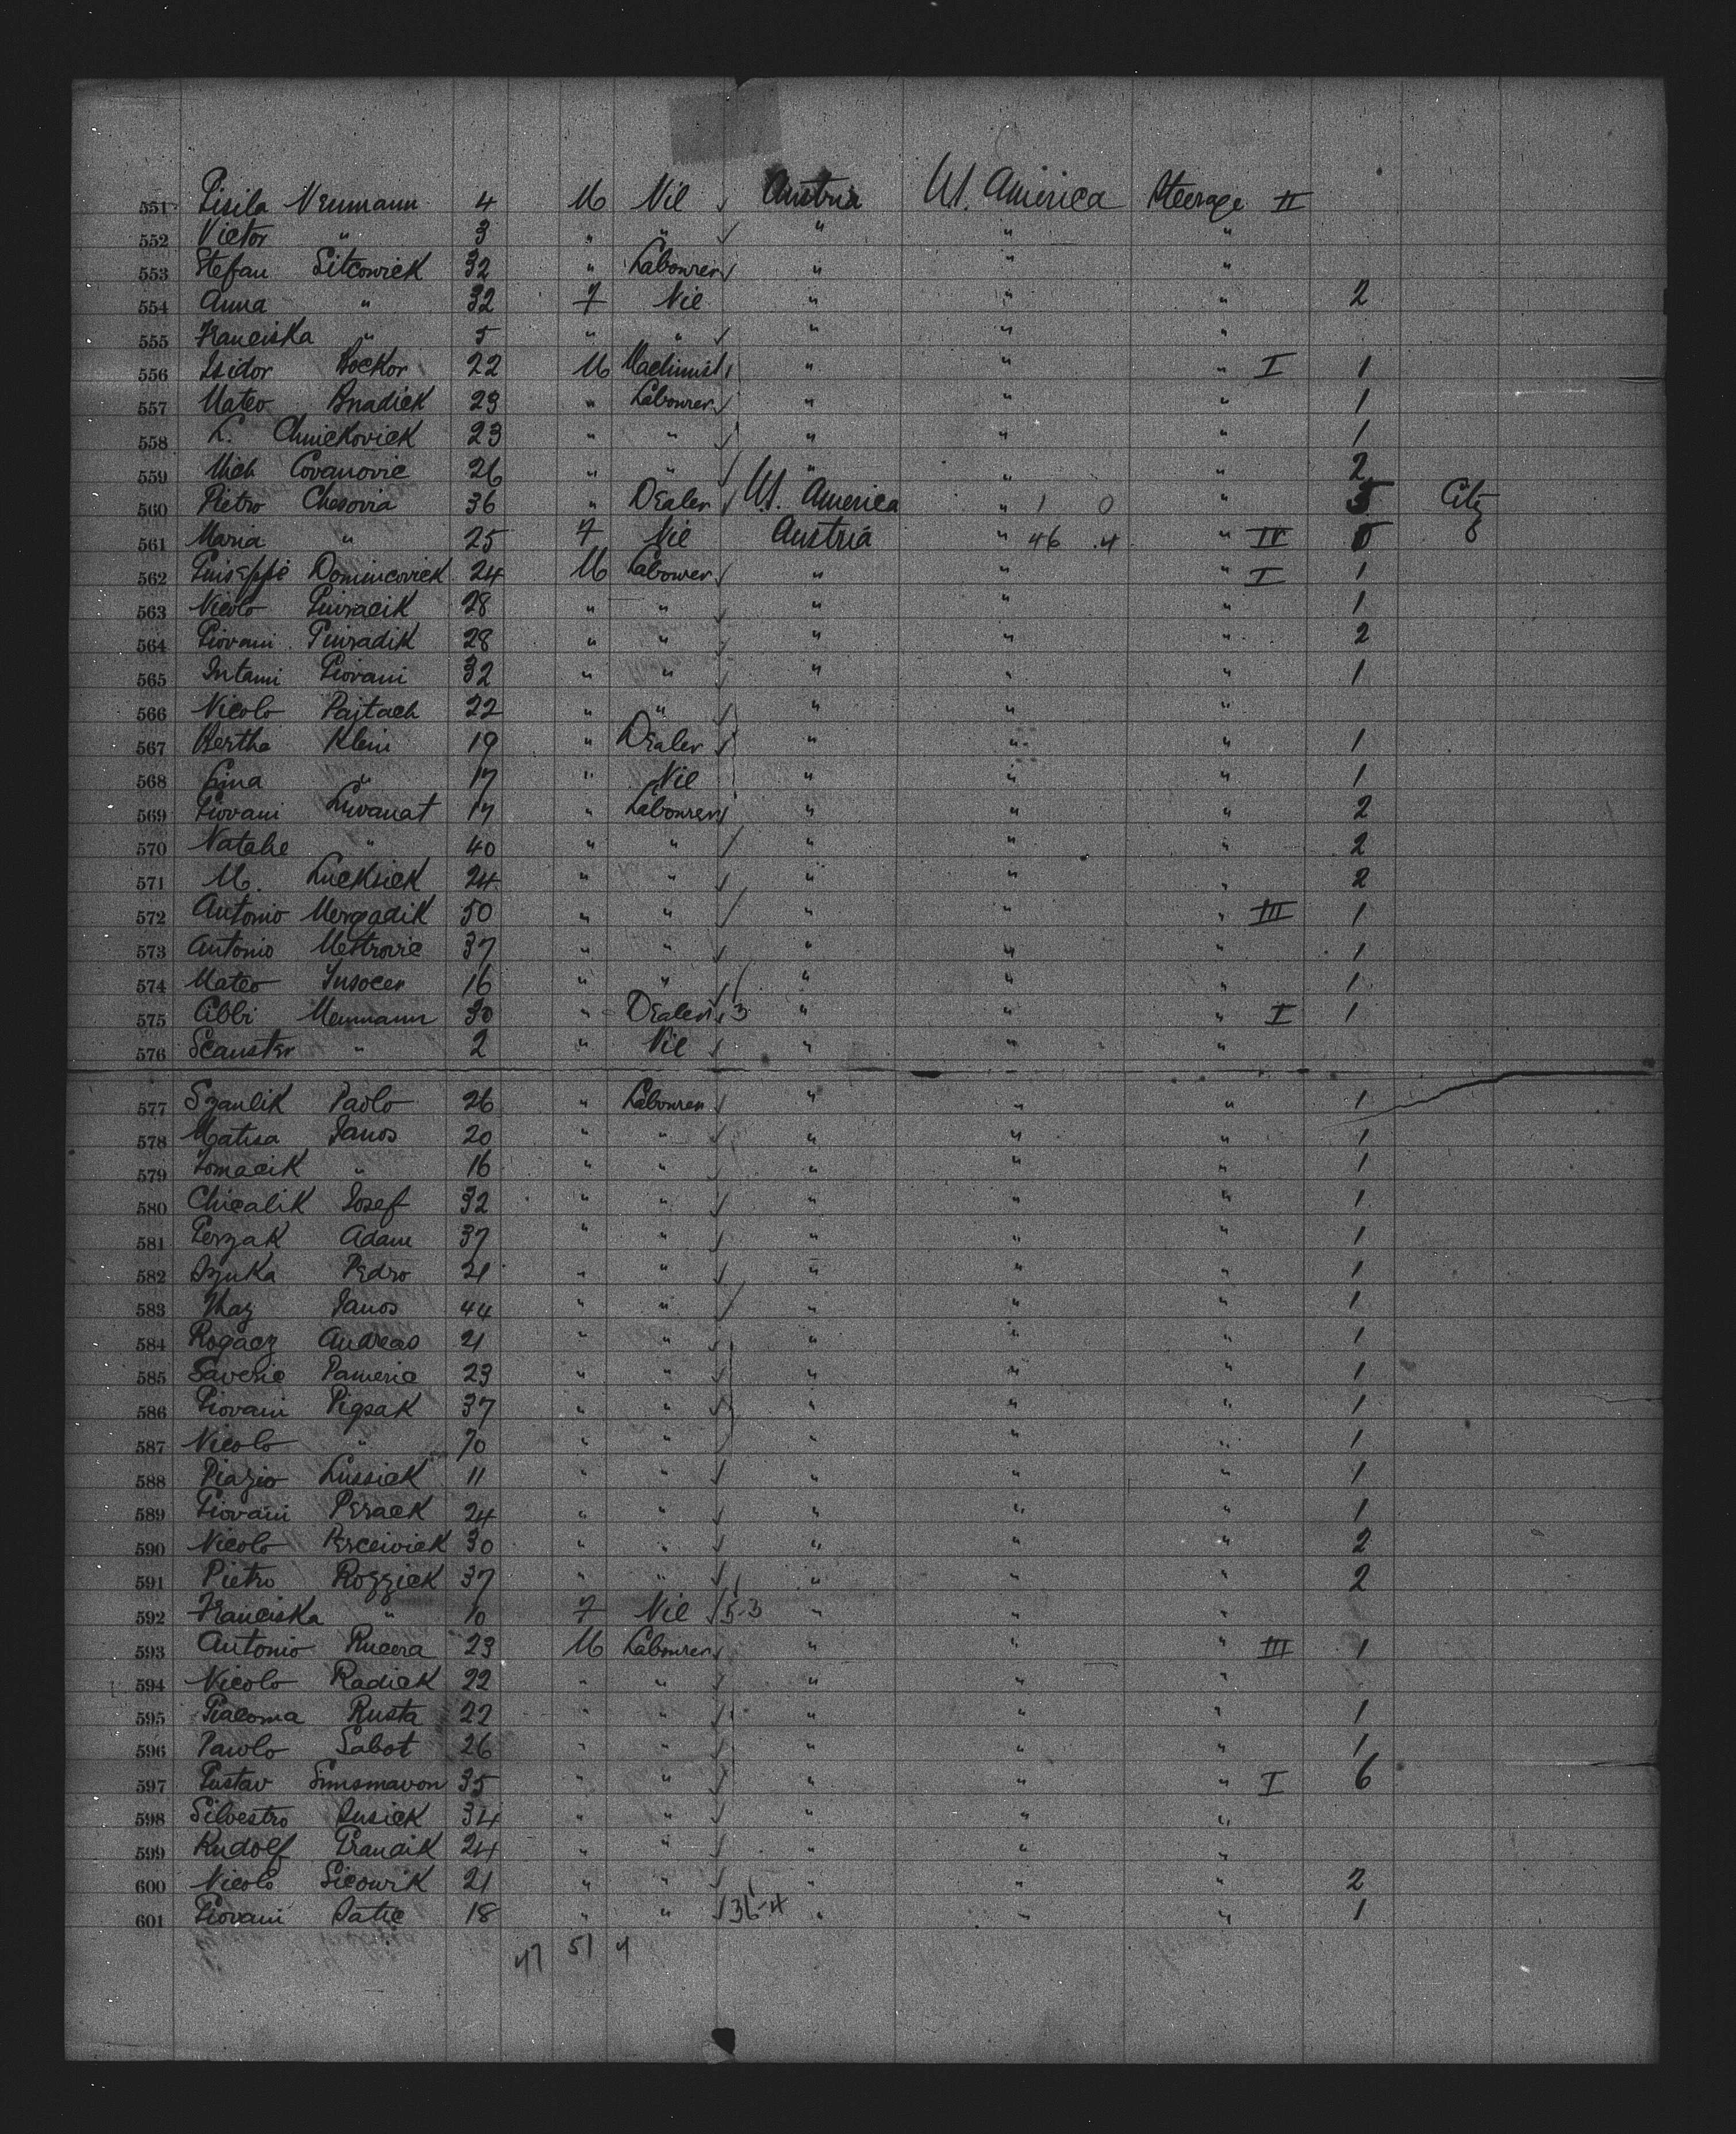 551 Gisila Neumann 4 M Nil Austria U.S. America Steerage II
552 Victor " 3 " " " " "
553 Stefan Sitcowick 32 " Labourer " " "
554 Anna " 32 F Nil " " " 2
555 Franciska " 5 " " " " "
556 Isidor Bockor 22 M Machinist " " " I 1
557 Mateo Bnadick 23 " Labourer " " " 1
558 L. Chnickovick 23 " " " " " 1
559 Mich Covanovic 26 " " " " " 2
560 Pietro Chesovia 36 " Dealer U.S. America " 1 0 " 5 City
561 Maria " 25 F Nil Austria " 46 4 " IV
562 Guiseppe Domincovick 24 M Labourer " " " I 1
563 Nicolo Guiracik 28 " " " " " 1
564 Giovani Guiradik 28 " " " " " 2
565 Intami Giovani 32 " " " " " 1
566 Nicolo Pajtach 22 " " " " "
567 Bertha Klein 19 " Dealer " " " 1
568 Lina " 17 " Nil " " " 1
569 Giovani Luvanat 17 " Labourer " " " 2
570 Natale " 40 " " " " " 2
571 M. Lucksick 24 " " " " " 2
572 Antonio Mergadik 50 " " " " " III 1
573 Antonio Mestrovic 37 " " " " " 1
574 Mateo 16 " " " " " 1
575 Abbi Neumann 30 " Dealer 3 " " " I 1
576 Scauster " 2 " Nil " " "
577 Szaulik Paolo 26 " Labourer " " " 1
578 Matisa Janos 20 " " " " " 1
579 Tomacik " 16 " " " " " 1
580 Chicalik Josef 32 " " " " " 1
581 Perzak Adam 37 " " " " " 1
582 Szuka Pedro 21 " " " " " 1
583 Janos 44 " " " " " 1
584 Rogacz Andreas 21 " " " " " 1
585 Saverie Pameric 23 " " " " " 1
586 Giovani Pigsak 37 " " " " " 1
587 Nicolo " 70 " " " " " 1
588 Biazio Lussick 11 " " " " " 1
589 Giovani Perack 24 " " " " " 1
590 Nicolo Percewick 30 " " " " " 2
591 Pietro Rozzick 37 " " " " " 2
592 Franciska " 10 F Nil 5-3 " " "
593 Antonio Rucera 23 M Labourer " " " III 1
594 Nicolo Radick 22 " " " " "
595 Giacoma Rusta 22 " " " " " 1
596 Paolo Sabot 26 " " " " " 1
597 Gustav Simsmavon 35 " " " " " I 6
598 Silvestro Susick 34 " " " " "
599 Rudolf Prandik 24 " " " " "
600 Nicolo Sicowik 21 " " " " " 2
601 Giovani Satic 18 " " 36-4 " " " 1
47 51 4